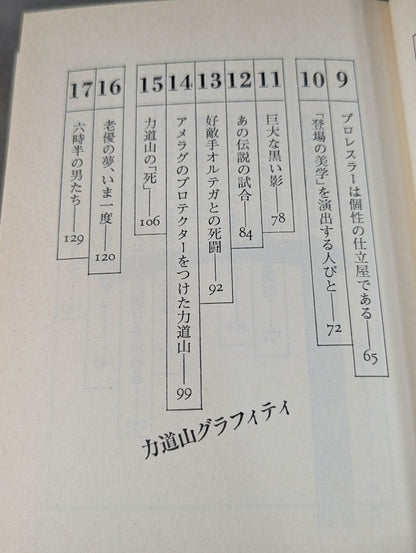 9 プロレスラーは個性の仕立屋である——65
10 「登場の美学」を演出する人びと——72
11 巨大な黒い影——78
12 あの伝説の試合——84
13 好敵手オルテガとの死闘——92
14 アメラグのプロテクターをつけた力道山——99
15 力道山の「死」——106
16 老優の夢、いま一度——120
17 六時半の男たち——129
力道山グラフィティ